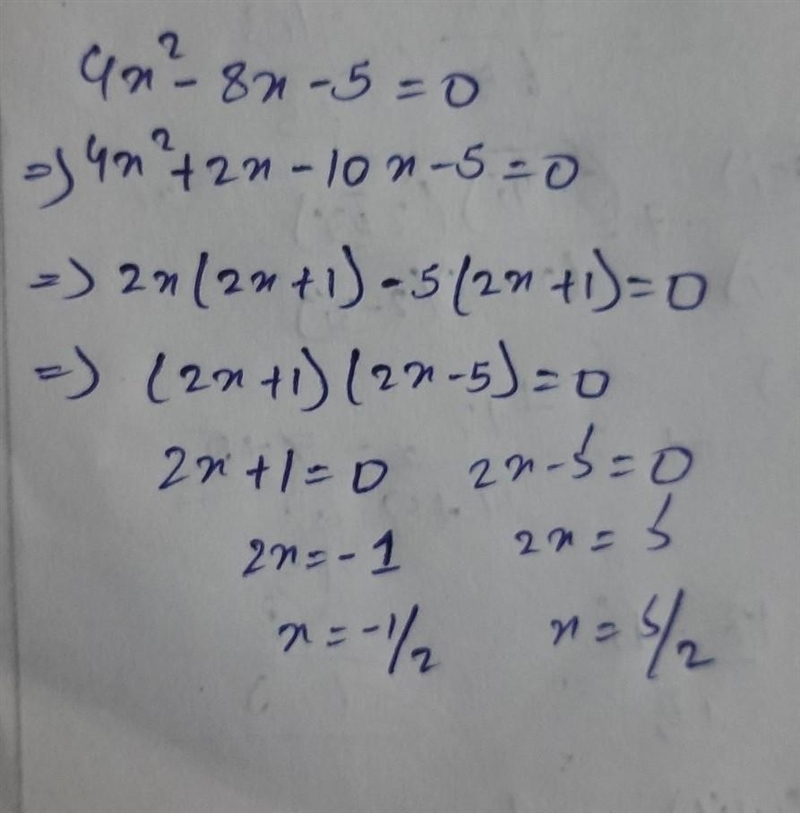 4x² - 8x - 5 = 0
=> 4x² + 2x - 10x - 5 = 0
=> 2x(2x+1) - 5(2x+1) = 0
=> (2x+1)(2x-5) = 0
2x+1=0 2x-5=0
2x=-1 2x=5
x=-1/2 x=5/2